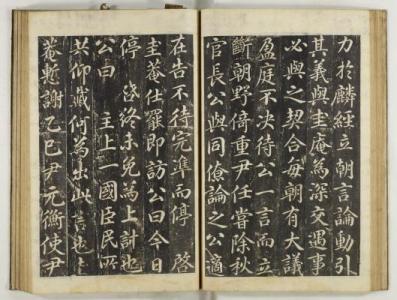 力於麟經立朝言論動引
其義與圭庵為深交遇事
必與之契合每朝有大議
盈庭不決待公一言而立
斷朝野倚重尹任嘗除秋
官長公與同僚論之公適
在告不待完準而停 啓
圭菴仕罷即訪公曰今日
停 啓終未免為上計也
公曰 主上一國臣民所
共仰戴何為出此言也圭
菴慙謝乙巳尹元衡使尹